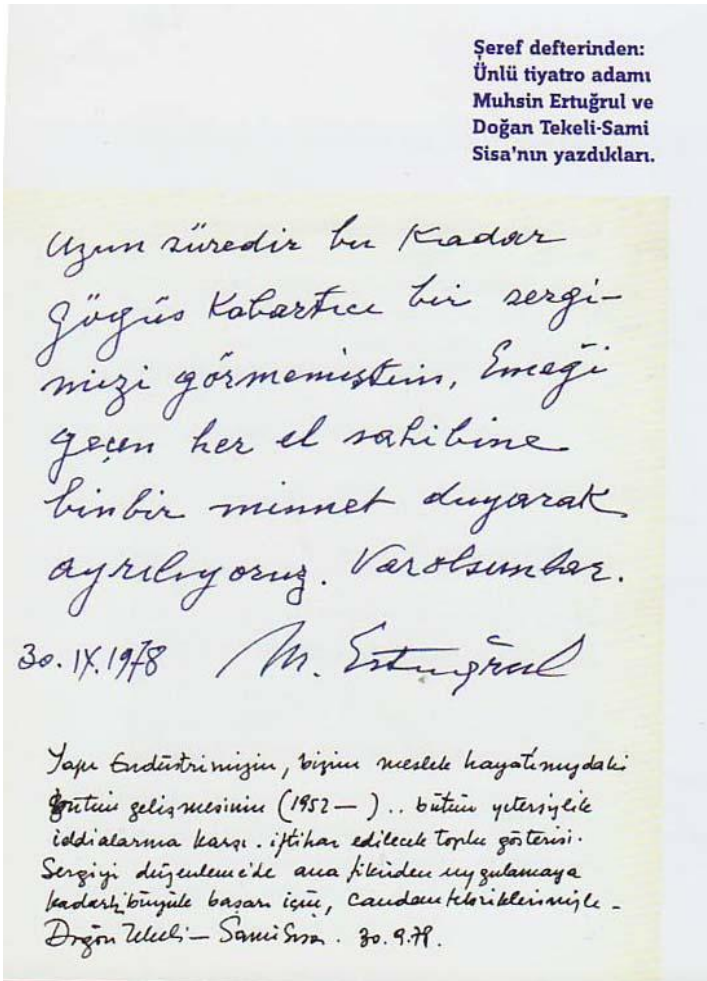 Şeref defterinden:
Ünlü tiyatro adamı
Muhsin Ertuğrul ve
Doğan Tekeli-Sami
Sisa'nın yazdıkları.
Uzun süredir bu kadar
göğüs kabartıcı bir sergi-
mizi görmemiştim. Emeği
geçen her el sahibine
binbir minnet duyarak
ayrılıyoruz. Varolsunlar.
30.IX.1978 M. Ertuğrul
Yapı Endüstrimizin, bizim meslek hayatımızdaki
bütün gelişmesinin (1952 — ) .. bütün yetersizlik
iddialarına karşı. iftihar edilecek toplu gösterisi.
Sergiyi düzenleme'de ana fikirden uygulamaya
kadarki büyük başarı için, candan tebriklerimizle -
Doğan Tekeli — Sami Sisa. 30.9.78.